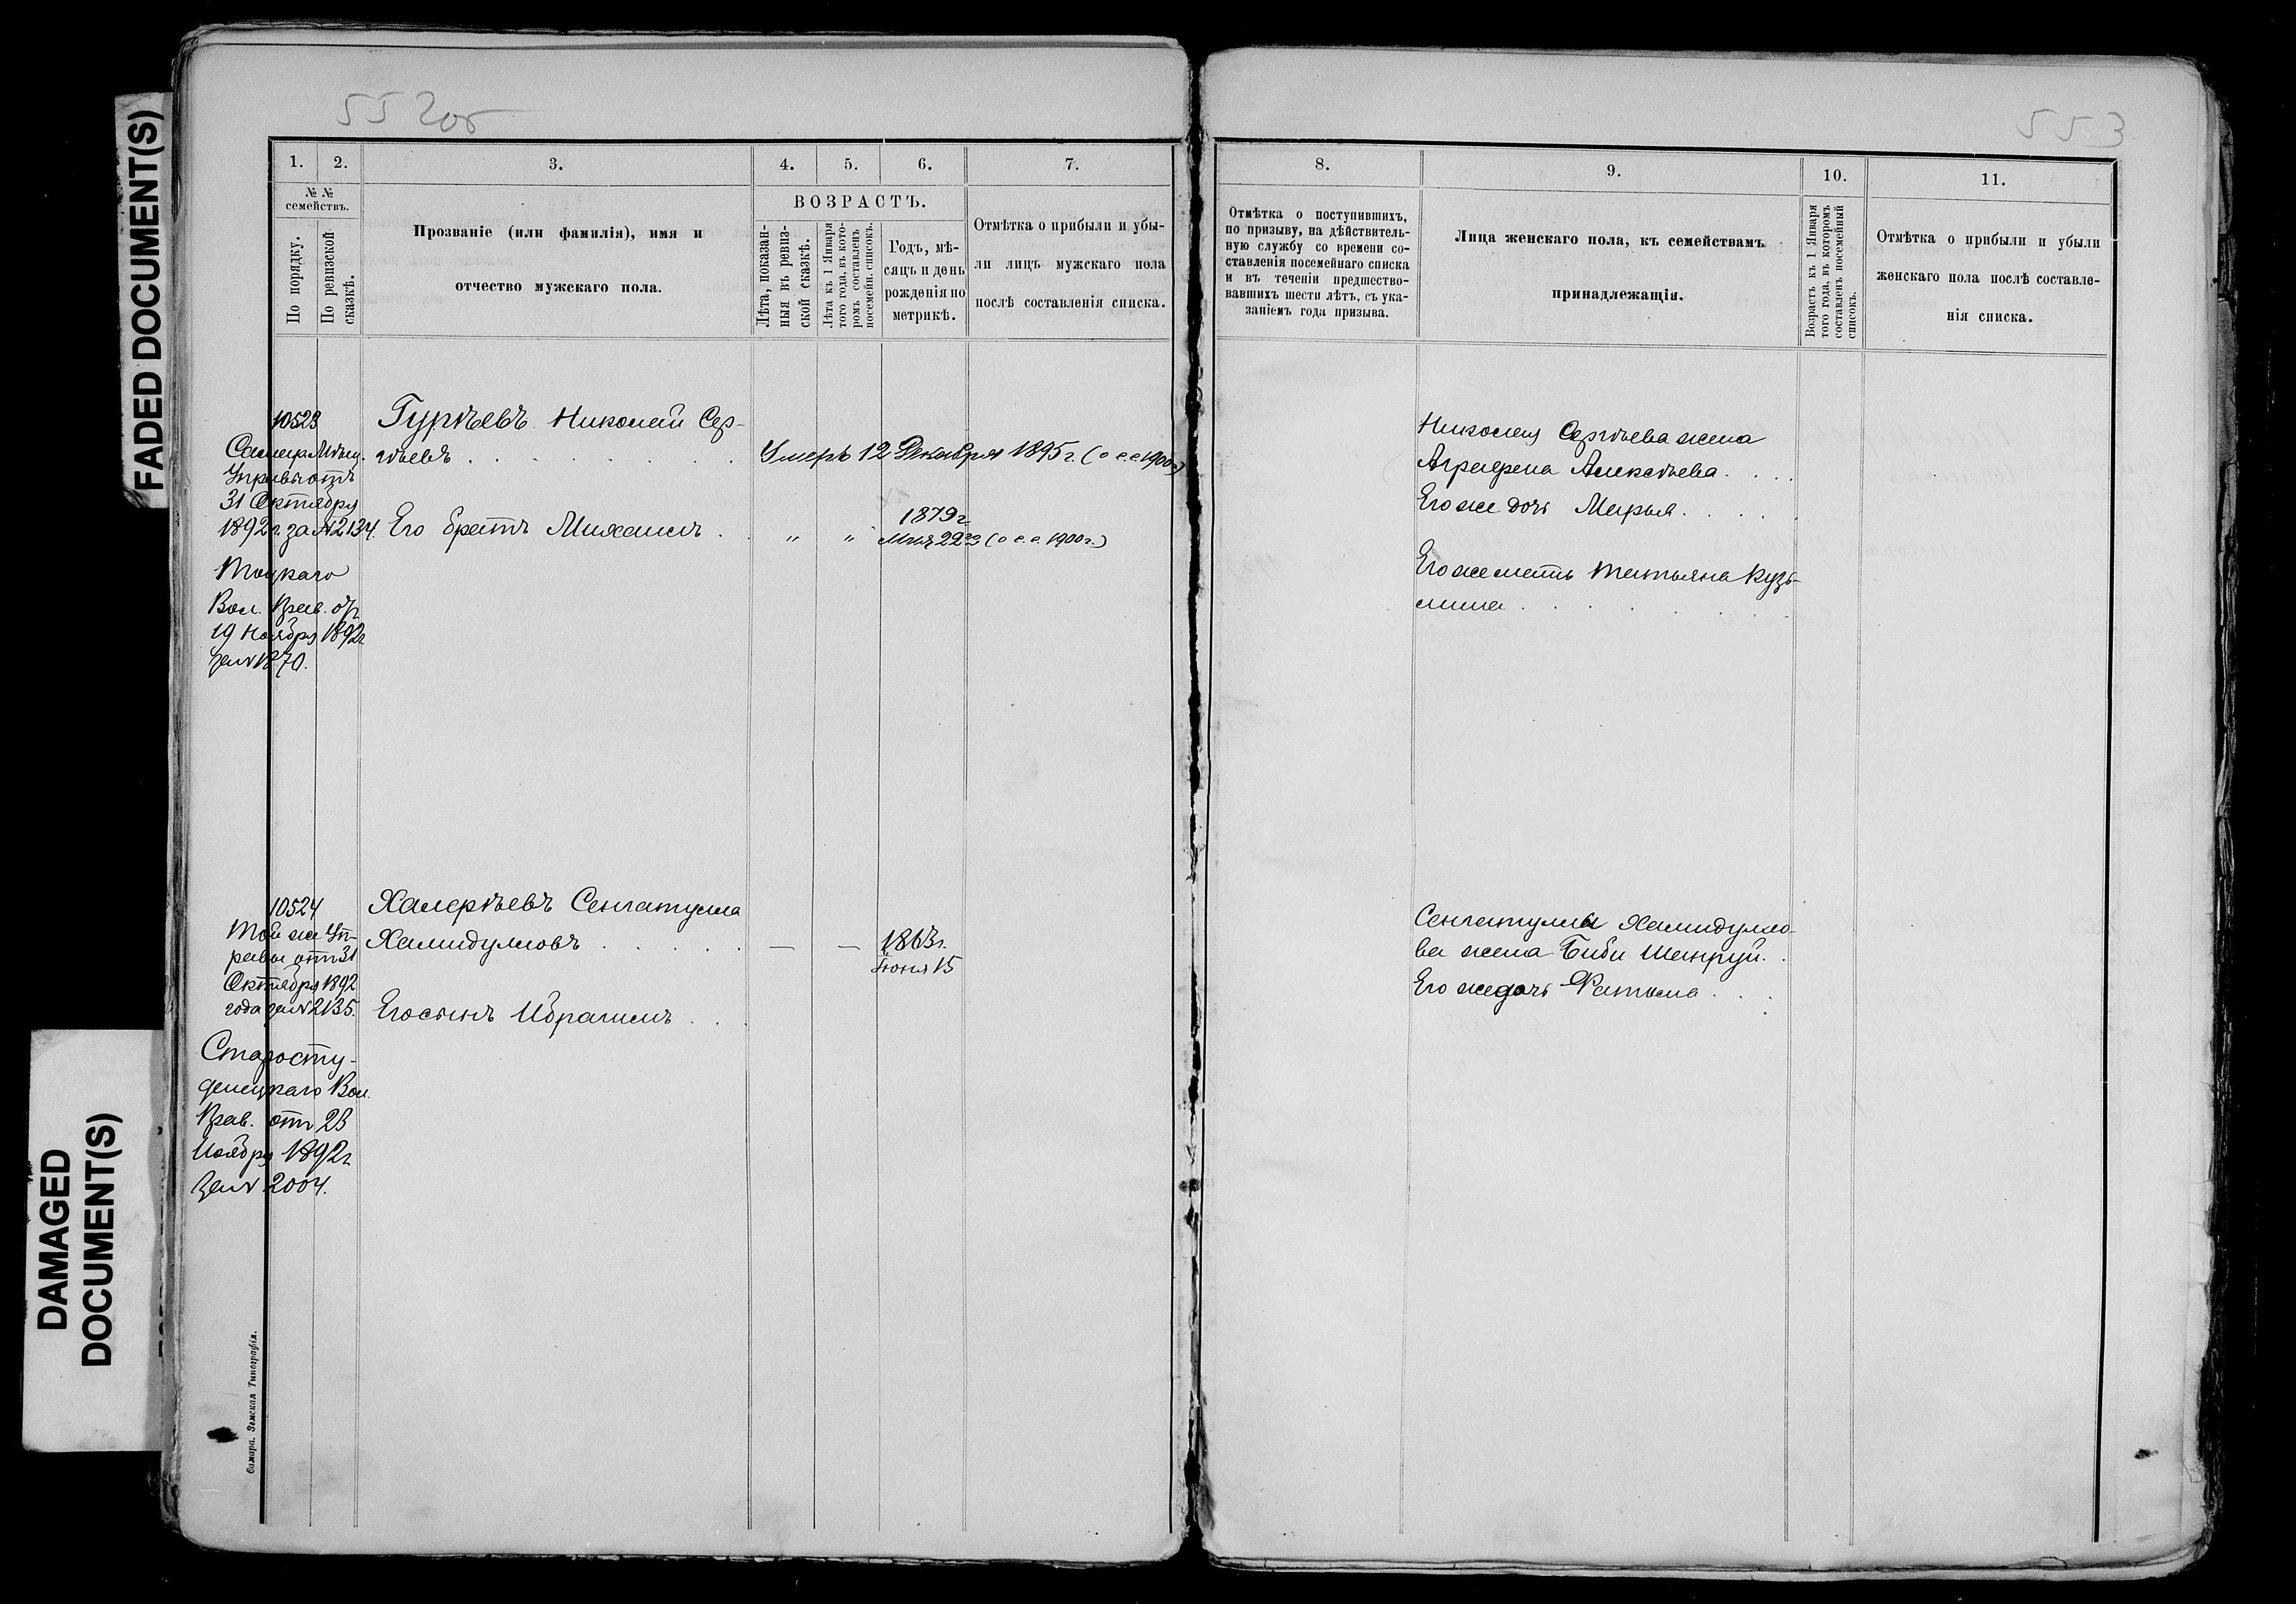 FADED DOCUMENT(S)
DAMAGED
DOCUMENT(S)
552об
1. 2. 3. 4. 5. 6. 7.
№ №
семействъ.
По порядку.
По ревизской
сказкѣ.
Прозваніе (или фамилія), имя и
отчество мужскаго пола.
ВОЗРАСТЪ.
Лѣта, показан-
ныя въ ревиз-
ской сказкѣ.
Лѣта къ 1 Января
того года, въ кото-
ромъ составленъ
посемейн. списокъ.
Годъ, мѣ-
сяцъ и день
рожденія по
метрикѣ.
Отмѣтка о прибыли и убы-
ли лицъ мужскаго пола
послѣ составленія списка.
10523
Самар. Мѣщ.
Управы отъ
31 Октября
1892 г. за № 2134.
Тоцкаго
Вол. Прав. от
19 Ноября 1892 г
за № 1870.
Гурѣевъ Николай Сер-
гѣевъ
Умеръ 12 Декабря 1895 г. (о с.с. 1900 г.)
Его братъ Михаилъ . " " 1879 г
Мая 22го (о с.с. 1900 г.)
10524
Той же Уп-
равы отъ 31
Октября 1892
года за № 2135.
Старосту-
денецкаго Вол.
Прав. отъ 23
Ноября 1892 г
за № 2004.
Халерѣевъ Сенгатулла
Хамидулловъ . . . . — — 1863 г.
Іюня 15
Его сынъ Ибрагимъ . .
Самара. Земская Типографія.
553
8. 9. 10. 11.
Отмѣтка о поступившихъ,
по призыву, на дѣйствитель-
ную службу со времени со-
ставленія посемейнаго списка
и въ теченіи предшество-
вавшихъ шести лѣтъ, съ ука-
заніемъ года призыва.
Лица женскаго пола, къ семействамъ
принадлежащія.
Возрастъ къ 1 Января
того года, въ которомъ
составленъ посемейный
списокъ.
Отмѣтка о прибыли и убыли
женскаго пола послѣ составле-
нія списка.
Николая Сергѣева жена
Аграфена Алексѣева . . .
Его же дочь Марья . . . .
Его же мать Татьяна Кузь-
мина . . . . . .
Сенгатуллы Хамидулло-
ва жена Биби Шанруй . .
Его же дочь Фатыма . . .